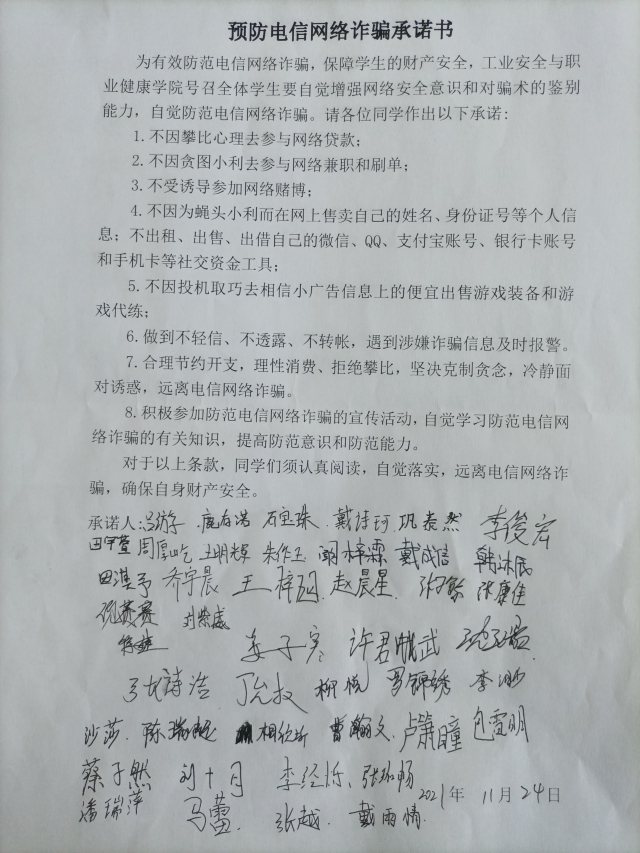 预防电信网络诈骗承诺书
为有效防范电信网络诈骗，保障学生的财产安全，工业安全与职
业健康学院号召全体学生要自觉增强网络安全意识和对骗术的鉴别
能力，自觉防范电信网络诈骗。请各位同学作出以下承诺:
1.不因攀比心理去参与网络贷款；
2.不因贪图小利去参与网络兼职和刷单；
3.不受诱导参加网络赌博；
4.不因为蝇头小利而在网上售卖自己的姓名、身份证号等个人信
息；不出租、出售、出借自己的微信、QQ、支付宝账号、银行卡账号
和手机卡等社交资金工具；
5.不因投机取巧去相信小广告信息上的便宜出售游戏装备和游
戏代练；
6.做到不轻信、不透露、不转帐，遇到涉嫌诈骗信息及时报警。
7.合理节约开支，理性消费、拒绝攀比，坚决克制贪念，冷静面
对诱惑，远离电信网络诈骗。
8.积极参加防范电信网络诈骗的宣传活动，自觉学习防范电信网
络诈骗的有关知识，提高防范意识和防范能力。
对于以上条款，同学们须认真阅读，自觉落实，远离电信网络诈
骗，确保自身财产安全。
承诺人: 石宝珠 李俊宏
周厚屹 王明光 朱作玉 胡梓霖 戴成信
田淇予 乔宇晨 王梓 赵晨星 张康佳
姜子寒 许君 武
诗浩 丁允权 柳悦 罗锦琇
沙莎 陈瑞 相欣 曹瀚文 卢箫瞳 包雪明
蔡子然 刘十月 李经 张 畅
潘瑞萍 马蕾 张越 戴雨情 2021年 11月24日